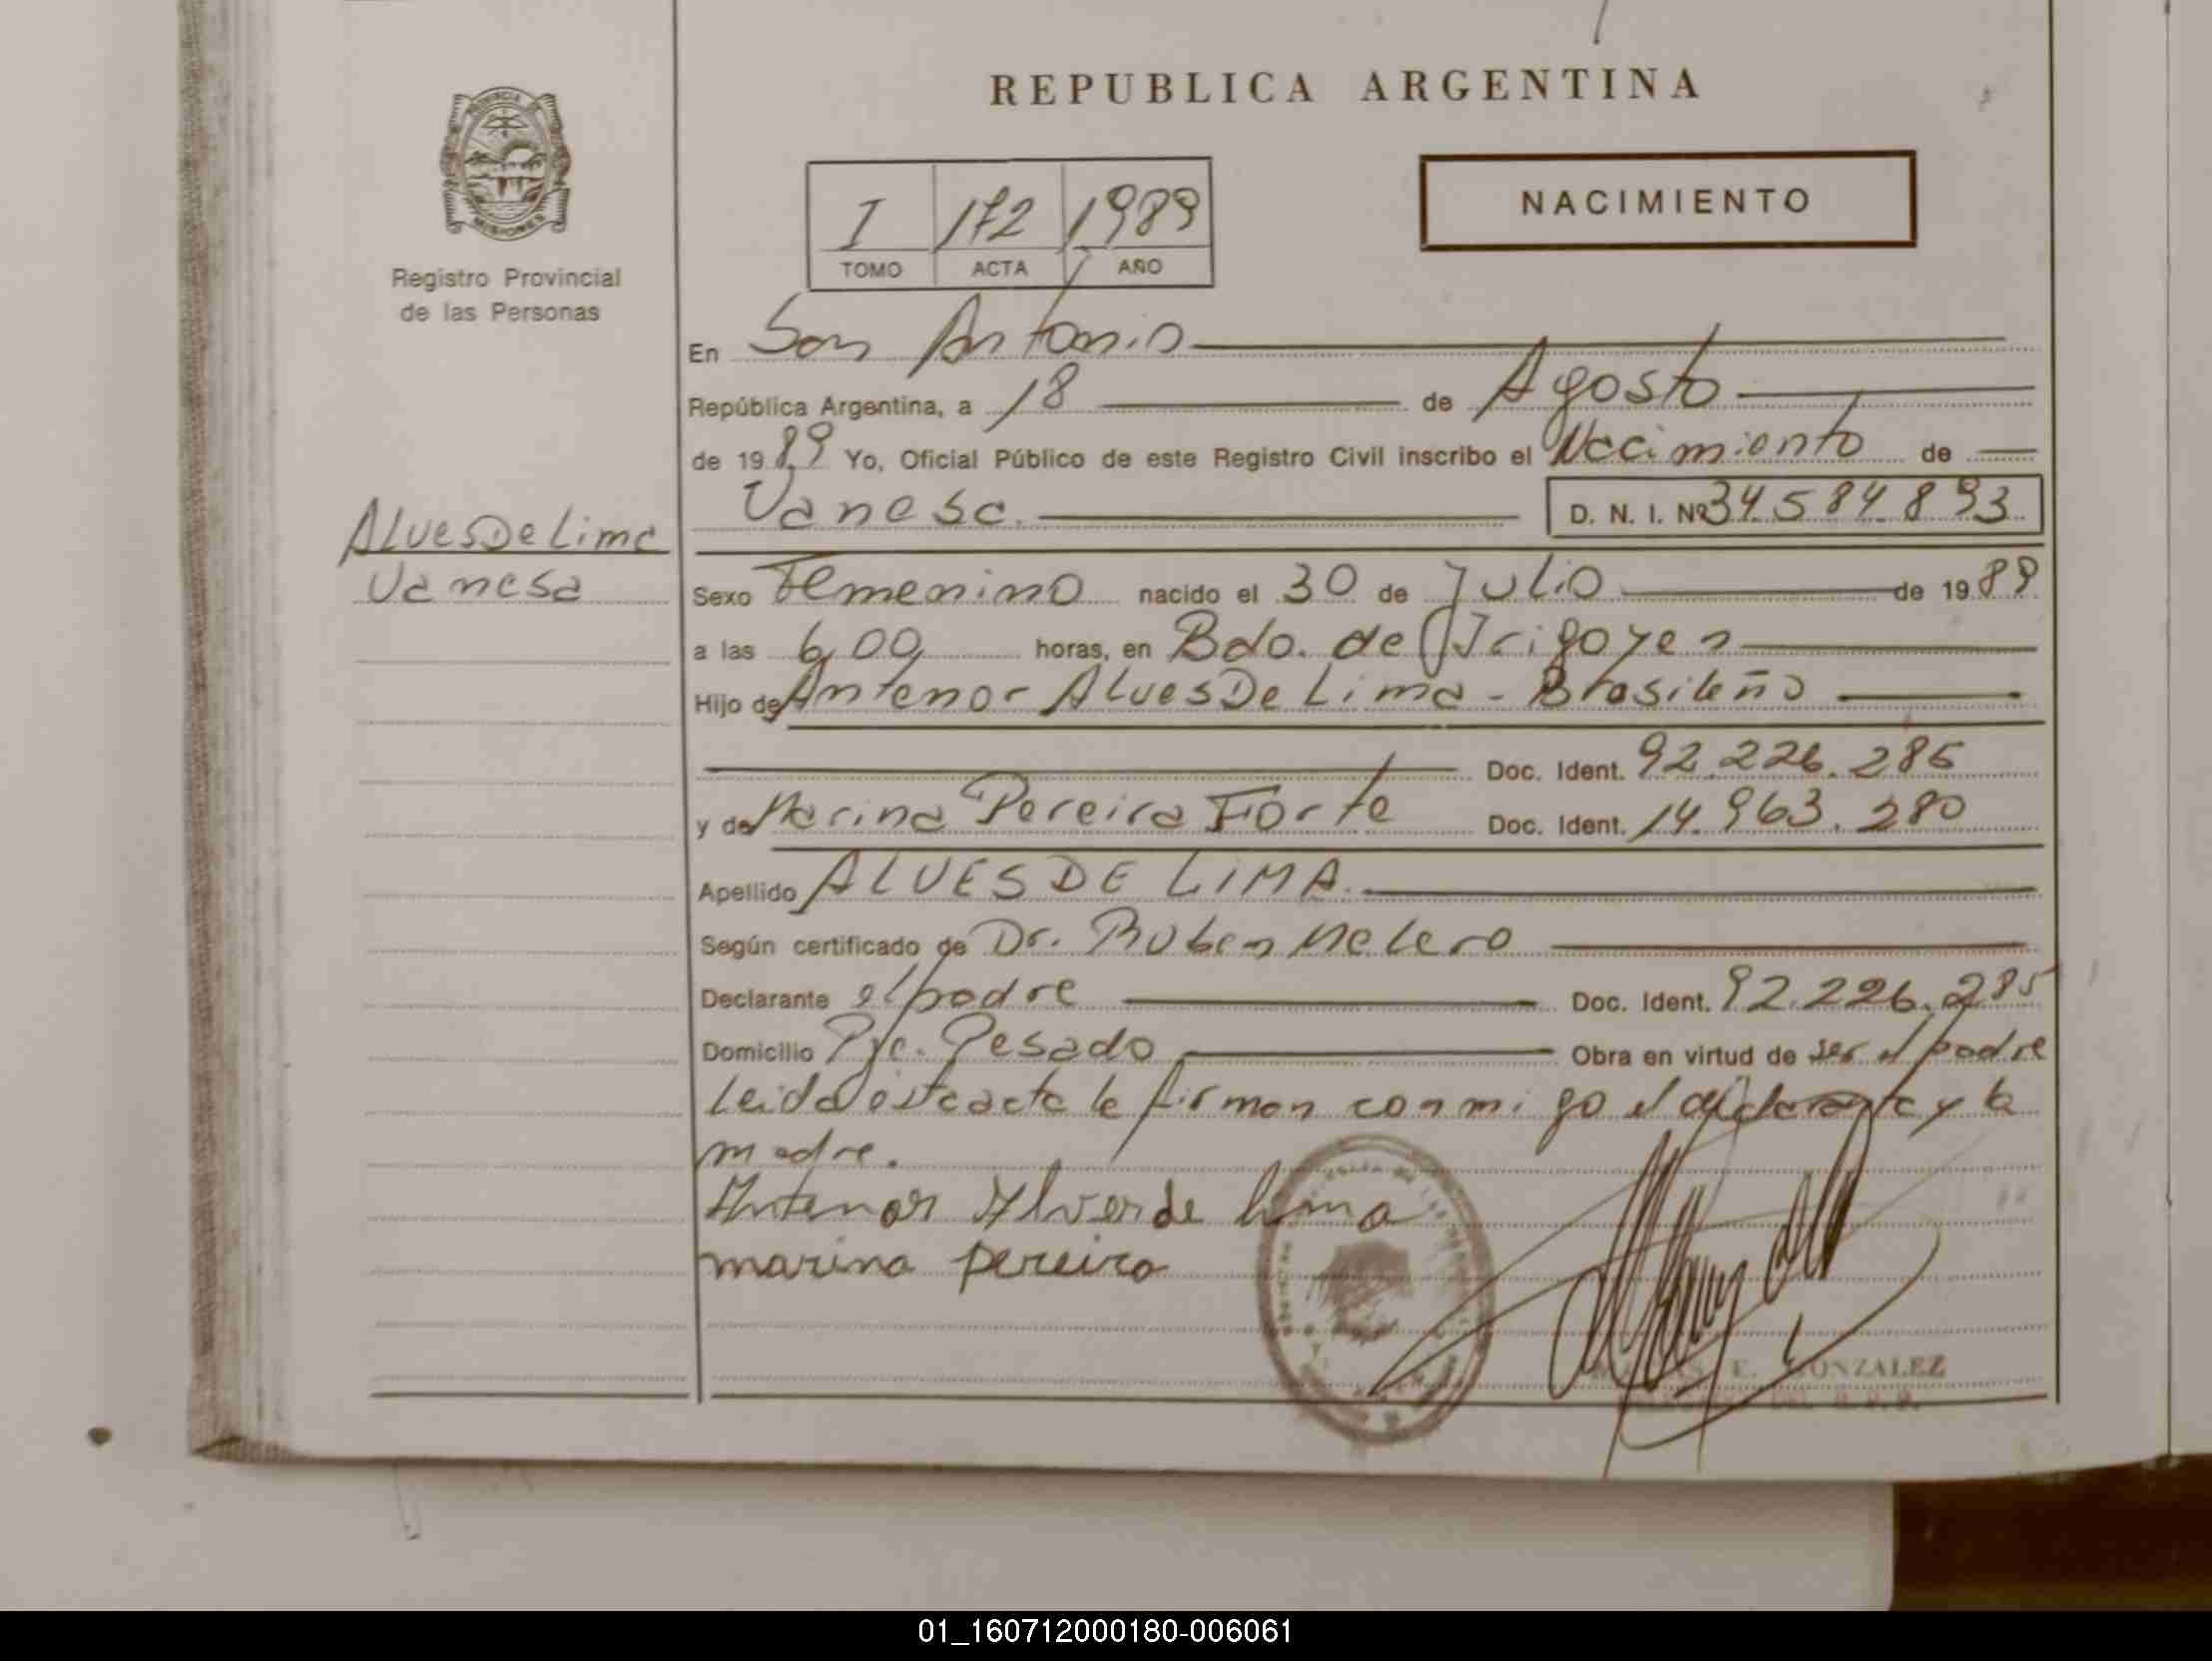 REPUBLICA ARGENTINA
PROVINCIA
MISIONES
Registro Provincial
de las Personas
I 172 1989
TOMO ACTA AÑO
NACIMIENTO
En San Antonio
República Argentina, a 18 de Agosto
de 1989 Yo, Oficial Público de este Registro Civil inscribo el Nacimiento de
Vanesa. D. N. I. Nº 34584893
Alves De Lima
Vanesa
Sexo Femenino nacido el 30 de Julio de 1989
a las 6,00 horas, en Bdo. de Irigoyen
Hijo de Antenor Alves De Lima - Brasileño
Doc. Ident. 92.226.285
y de Marina Pereira Forte Doc. Ident. 14.963.280
Apellido ALVES DE LIMA.
Según certificado de Dr. Ruben Melero
Declarante el padre Doc. Ident. 92.226.285
Domicilio Pje. Pesado Obra en virtud de ser el padre
Leida este acta la firman conmigo el declarante y la
madre.
Antenor Alves de Lima
marina pereira
E. GONZALEZ
01_160712000180-006061